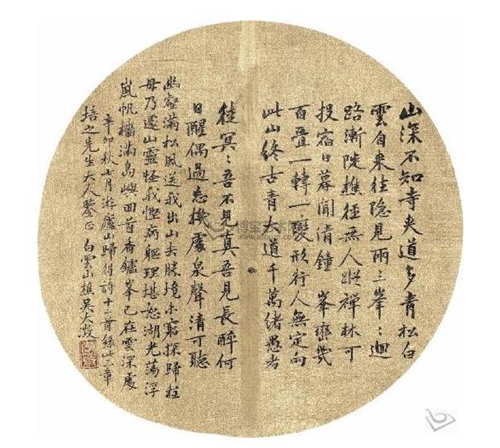 山深不知寺夾道多青松白
雲自來往隱見兩三峯〻迴
路漸陡樵徑無人蹤禪林可
投宿日暮聞清鐘 峯巒幾
百疊一轉一變形行人無定向
此山終古青大道千萬緒愚者
徒冥〻吾不見真吾見長醉何
日醒偶過忘機處泉聲清可聽
幽壑滿松風送我出山去勝境未窮探歸程
毋乃遽山靈怪我慳病軀理堪恕湖光蕩浮
嵐帆檣滿島嶼回首香鑪峯已在雲深處
辛卯秋七月游廬山歸得詩十二首錄此三章
培之先生大人鑒正 白雲山樵吳大澂